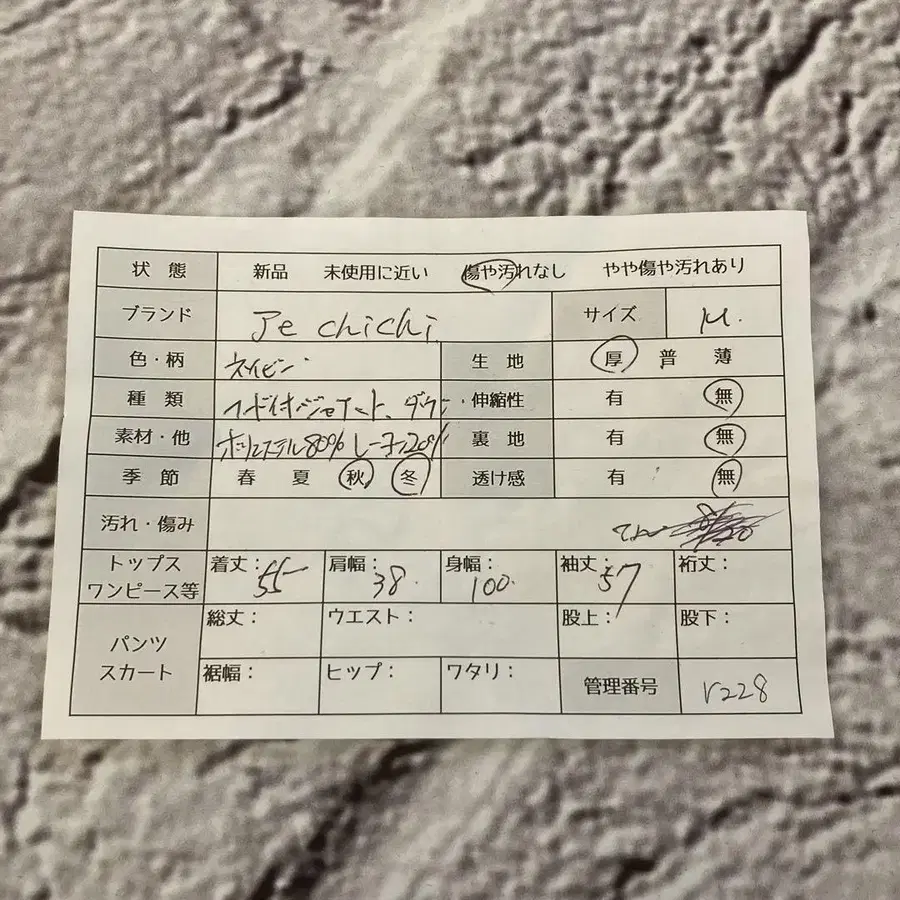 状態 新品 未使用に近い 傷や汚れなし やや傷や汚れあり
ブランド Je chichi サイズ M.
色・柄 ネイビー 生地 厚 普 薄
種類 ダウン 伸縮性 有 無
素材・他 ポリエステル80% レーヨン20% 裏地 有 無
季節 春 夏 秋 冬 透け感 有 無
汚れ・傷み
トップス ワンピース等 着丈: 55 肩幅: 38 身幅: 100 袖丈: 57 裄丈:
パンツ スカート 総丈: ウエスト: 股上: 股下:
裾幅: ヒップ: ワタリ: 管理番号 r228